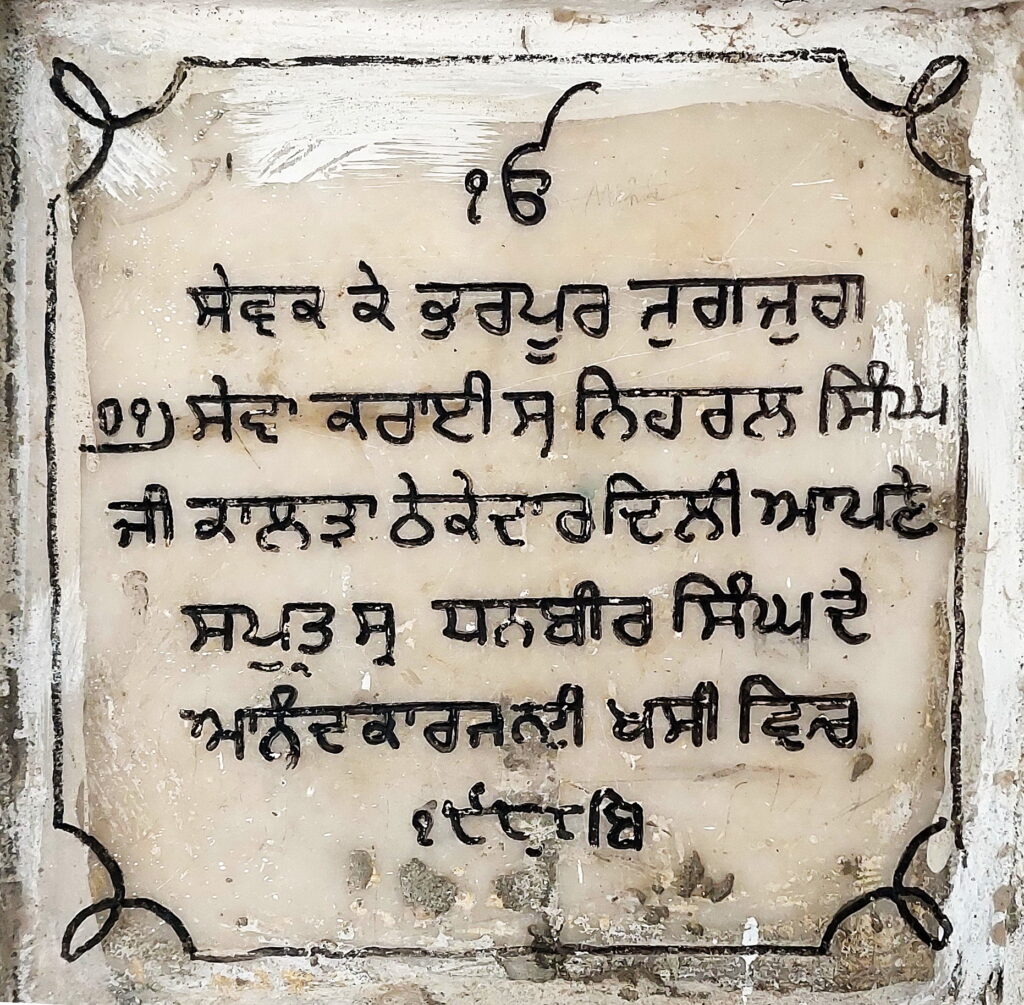 ੴ
ਸੇਵਕ ਕੇ ਭੁਰਪੂਰ ਜੁਗਜੁਗ
ਸੇਵਾ ਕਰਾਈ ਸ੍ਰ ਨਿਹਰਲ ਸਿੰਘ
ਜੀ ਕਾਲੜਾ ਠੇਕੇਦਾਰ ਦਿਲੀ ਆਪਣੇ
ਸਪੁਤ੍ਰ ਸ੍ਰ ਧਨਬੀਰ ਸਿੰਘ ਦੇ
ਆਨੰਦਕਾਰਜ ਵਿਚ